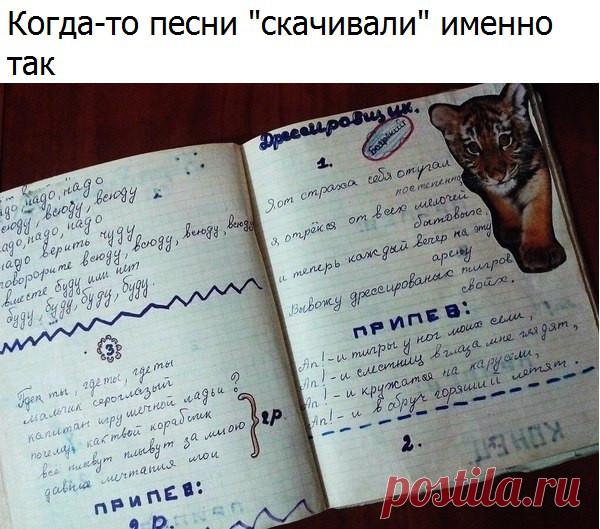 Когда-то песни "скачивали" именно
так
надо, надо
всюду, всюду, всюду
надо, надо, надо
надо верить чуду
говорите всюду, всюду, всюду, всюду
вместе буду или нет
буду, буду, буду, буду.
3
Где ты, где ты, где ты
мальчик сероглазый
капитан игрушечной ладьи?
почему, как твой кораблик
все плывут плывут за мною
давние мечтания мои
2р.
ПРИПЕВ:
2 р.
Дрессировщик.
Боярский
1.
Я от страха себя отучал
постепенно,
я, отрёкся от всех мелочей
бытовых.
и теперь каждый вечер на эту
арену
Вывожу дрессированых тигров
своих.
ПРИПЕВ:
Ап! - и тигры у ног моих сели,
Ап! - и с лестниц в глаза мне глядят,
Ап! - и кружатся на карусели,
Ап! - и в обруч горящий летят.
2.
postila.ru